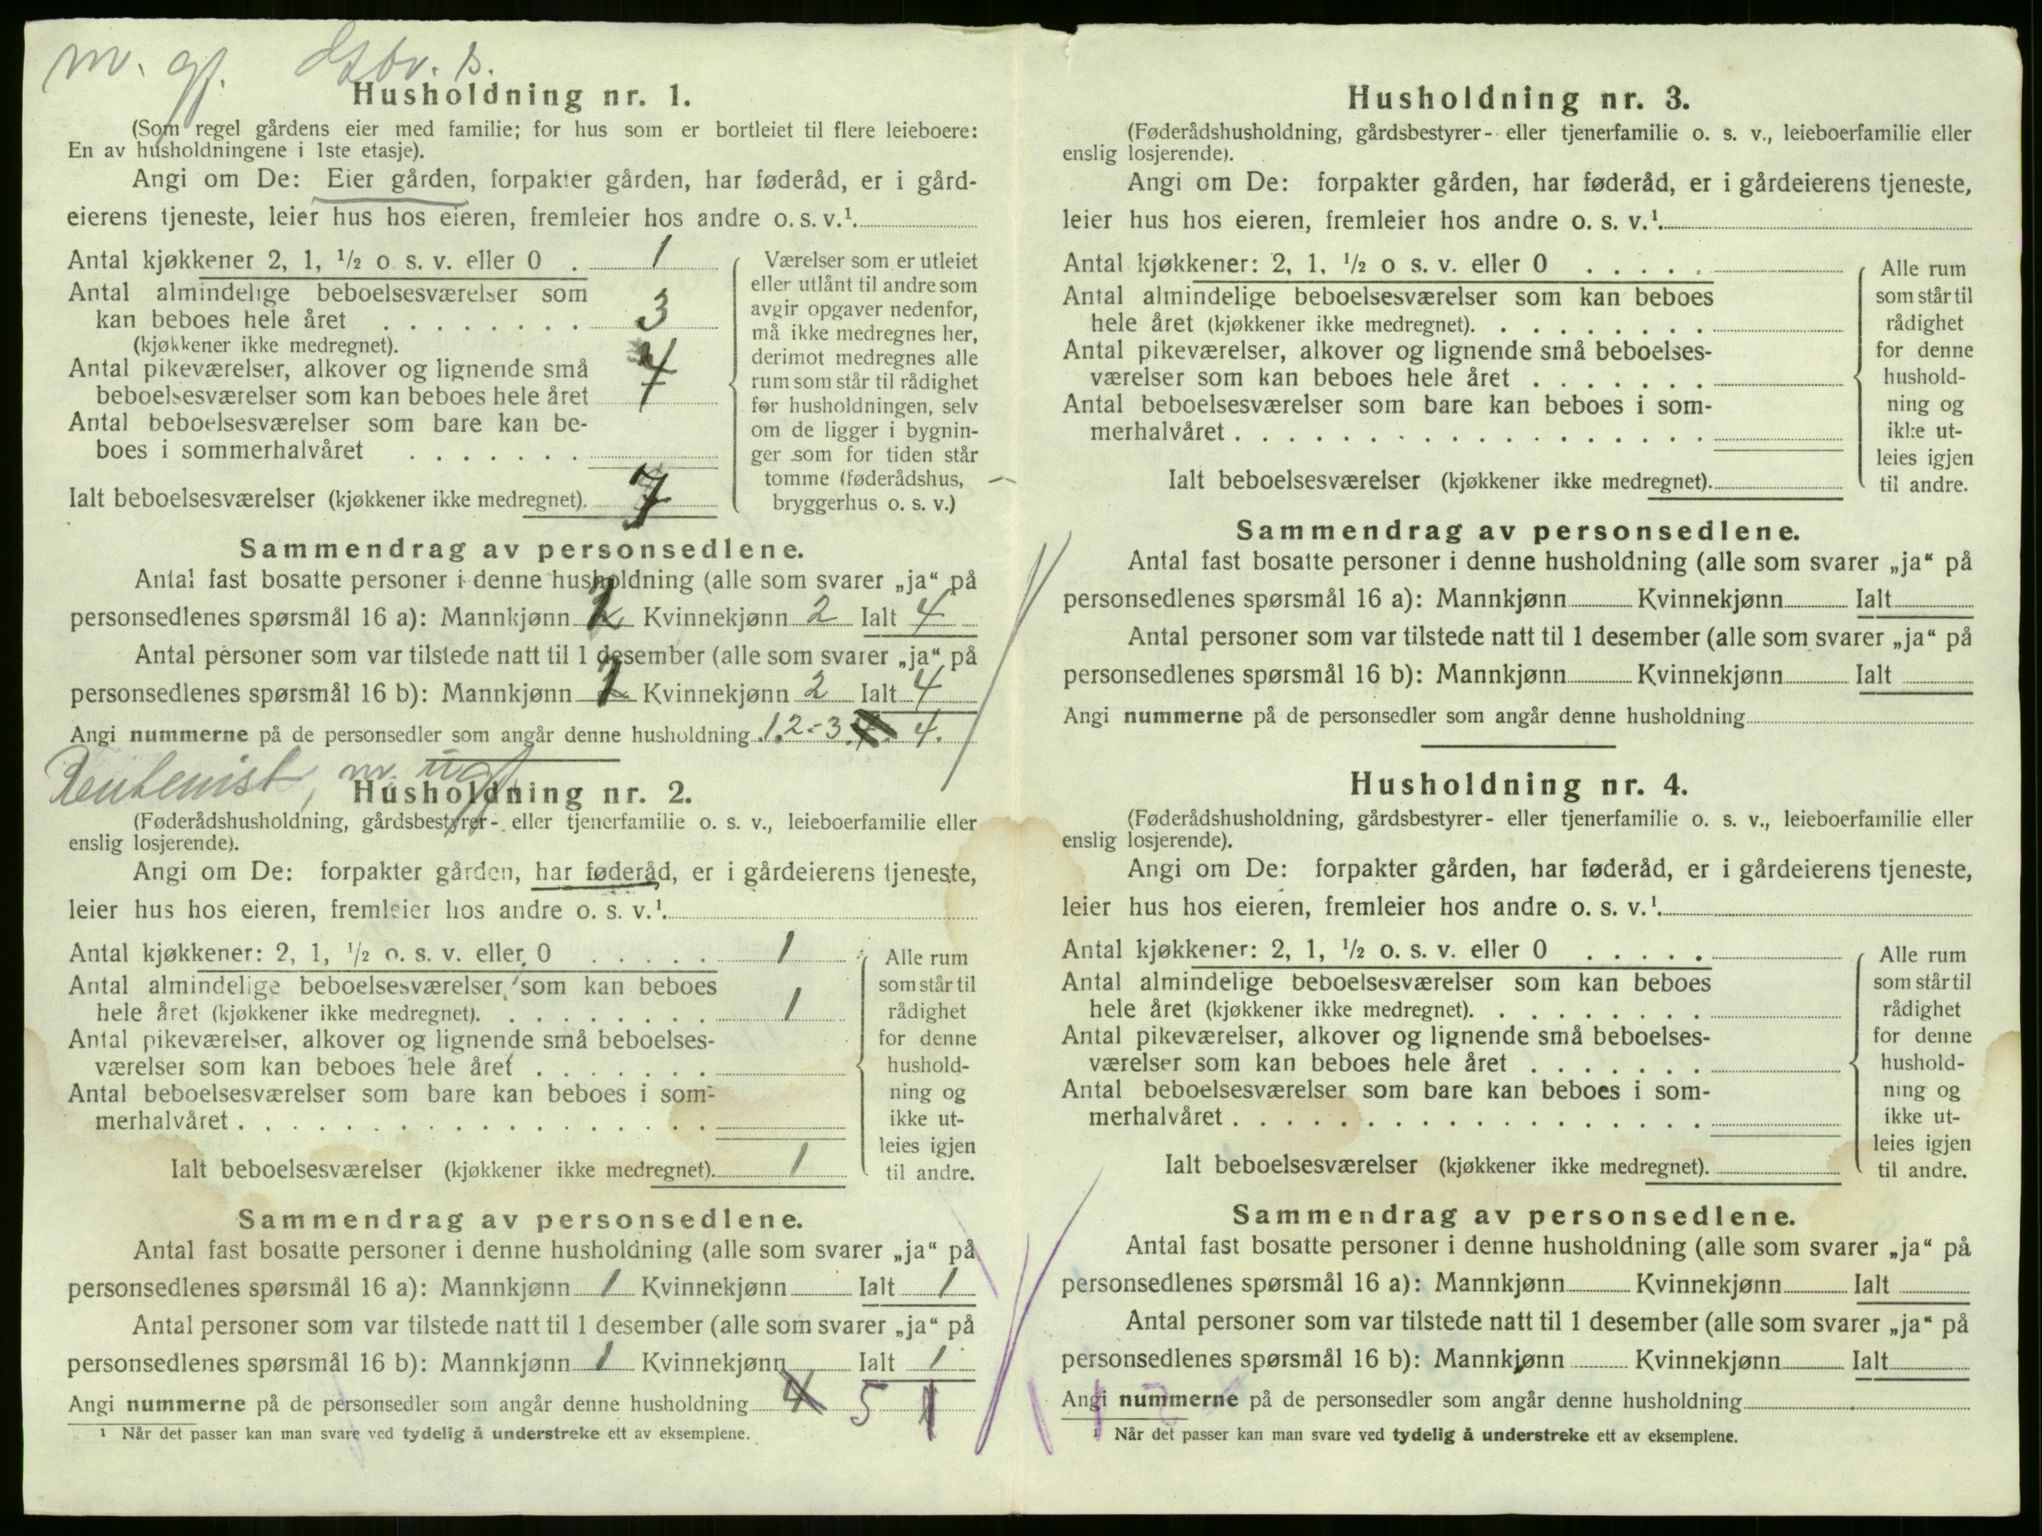 m. gf. Gbr. s.
Husholdning nr. 1.
(Som regel gårdens eier med familie; for hus som er bortleiet til flere leieboere:
En av husholdningene i 1ste etasje).
Angi om De: Eier gården, forpakter gården, har føderåd, er i gård-
eierens tjeneste, leier hus hos eieren, fremleier hos andre o. s. v.¹.
Antal kjøkkener 2, 1, ½ o s. v. eller 0 . 1
Antal almindelige beboelsesværelser som
kan beboes hele året . . . . . . . . 3
(kjøkkener ikke medregnet).
Antal pikeværelser, alkover og lignende små
beboelsesværelser som kan beboes hele året 4
Antal beboelsesværelser som bare kan be-
boes i sommerhalvåret . . . . . . .
Ialt beboelsesværelser (kjøkkener ikke medregnet). 7
Værelser som er utleiet
eller utlånt til andre som
avgir opgaver nedenfor,
må ikke medregnes her,
derimot medregnes alle
rum som står til rådighet
for husholdningen, selv
om de ligger i bygnin-
ger som for tiden står
tomme (føderådshus,
bryggerhus o. s. v.)
Sammendrag av personsedlene.
Antal fast bosatte personer i denne husholdning (alle som svarer „ja“ på
personsedlenes spørsmål 16 a): Mannkjønn 2 Kvinnekjønn 2 Ialt 4
Antal personer som var tilstede natt til 1 desember (alle som svarer „ja“ på
personsedlenes spørsmål 16 b): Mannkjønn 2 Kvinnekjønn 2 Ialt 4
Angi nummerne på de personsedler som angår denne husholdning 1.2-3. 4.
Rentenist, m. ugf.
Husholdning nr. 2.
(Føderådshusholdning, gårdsbestyrer- eller tjenerfamilie o. s. v., leieboerfamilie eller
enslig losjerende).
Angi om De: forpakter gården, har føderåd, er i gårdeierens tjeneste,
leier hus hos eieren, fremleier hos andre o. s. v.¹.
Antal kjøkkener: 2, 1, ½ o. s. v. eller 0 . . . . . 1
Antal almindelige beboelsesværelser som kan beboes
hele året (kjøkkener ikke medregnet). . . . . . . . . 1
Antal pikeværelser, alkover og lignende små beboelses-
værelser som kan beboes hele året . . . . . . .
Antal beboelsesværelser som bare kan beboes i som-
merhalvåret . . . . . . . . . . . . . . . . . .
Ialt beboelsesværelser (kjøkkener ikke medregnet). 1
Alle rum
som står til
rådighet
for denne
hushold-
ning og
ikke ut-
leies igjen
til andre.
Sammendrag av personsedlene.
Antal fast bosatte personer i denne husholdning (alle som svarer „ja“ på
personsedlenes spørsmål 16 a): Mannkjønn 1 Kvinnekjønn Ialt 1
Antal personer som var tilstede natt til 1 desember (alle som svarer „ja“ på
personsedlenes spørsmål 16 b): Mannkjønn 1 Kvinnekjønn Ialt 1
Angi nummerne på de personsedler som angår denne husholdning 4 5 1
¹ Når det passer kan man svare ved tydelig å understreke ett av eksemplene.
Husholdning nr. 3.
(Føderådshusholdning, gårdsbestyrer- eller tjenerfamilie o. s. v., leieboerfamilie eller
enslig losjerende).
Angi om De: forpakter gården, har føderåd, er i gårdeierens tjeneste,
leier hus hos eieren, fremleier hos andre o. s. v.¹.
Antal kjøkkener: 2, 1, ½ o s. v. eller 0 . . . . .
Antal almindelige beboelsesværelser som kan beboes
hele året (kjøkkener ikke medregnet). . . . . . . . .
Antal pikeværelser, alkover og lignende små beboelses-
værelser som kan beboes hele året . . . . . . .
Antal beboelsesværelser som bare kan beboes i som-
merhalvåret . . . . . . . . . . . . . . . . . .
Ialt beboelsesværelser (kjøkkener ikke medregnet).
Alle rum
som står til
rådighet
for denne
hushold-
ning og
ikke ut-
leies igjen
til andre.
Sammendrag av personsedlene.
Antal fast bosatte personer i denne husholdning (alle som svarer „ja“ på
personsedlenes spørsmål 16 a): Mannkjønn Kvinnekjønn Ialt
Antal personer som var tilstede natt til 1 desember (alle som svarer „ja“ på
personsedlenes spørsmål 16 b): Mannkjønn Kvinnekjønn Ialt
Angi nummerne på de personsedler som angår denne husholdning
Husholdning nr. 4.
(Føderådshusholdning, gårdsbestyrer- eller tjenerfamilie o. s. v., leieboerfamilie eller
enslig losjerende).
Angi om De: forpakter gården, har føderåd, er i gårdeierens tjeneste,
leier hus hos eieren, fremleier hos andre o. s. v.¹.
Antal kjøkkener: 2, 1, ½ o. s. v. eller 0 . . . . .
Antal almindelige beboelsesværelser som kan beboes
hele året (kjøkkener ikke medregnet). . . . . . . . .
Antal pikeværelser, alkover og lignende små beboelses-
værelser som kan beboes hele året . . . . . . .
Antal beboelsesværelser som bare kan beboes i som-
merhalvåret . . . . . . . . . . . . . . . . . .
Ialt beboelsesværelser (kjøkkener ikke medregnet).
Alle rum
som står til
rådighet
for denne
hushold-
ning og
ikke ut-
leies igjen
til andre.
Sammendrag av personsedlene.
Antal fast bosatte personer i denne husholdning (alle som svarer „ja“ på
personsedlenes spørsmål 16 a): Mannkjønn Kvinnekjønn Ialt
Antal personer som var tilstede natt til 1 desember (alle som svarer „ja“ på
personsedlenes spørsmål 16 b): Mannkjønn Kvinnekjønn Ialt
Angi nummerne på de personsedler som angår denne husholdning
¹ Når det passer kan man svare ved tydelig å understreke ett av eksemplene.